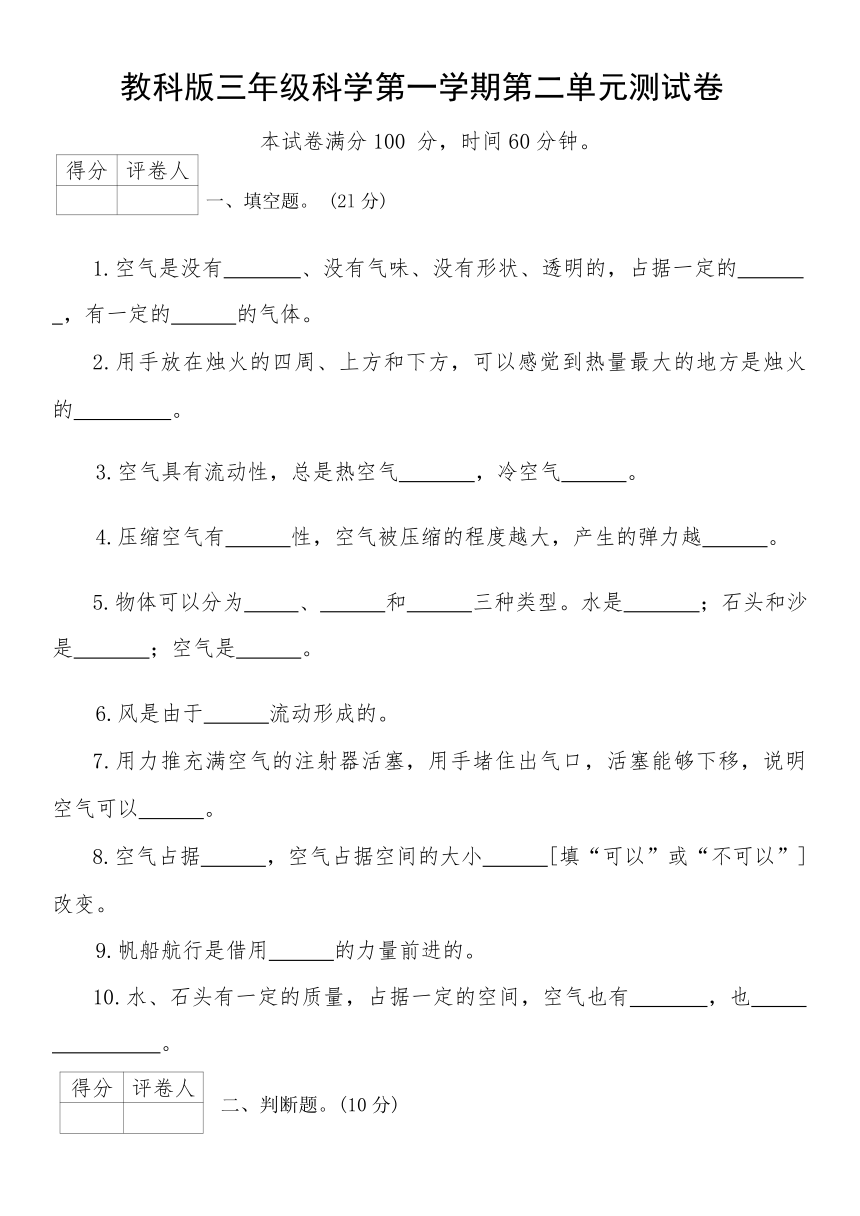 教科版三年级科学第一学期第二单元测试卷
本试卷满分100 分，时间60分钟。
得分 评卷人
一、填空题。 (21分)
1.空气是没有_______、没有气味、没有形状、透明的，占据一定的______
_，有一定的______的气体。
2.用手放在烛火的四周、上方和下方，可以感觉到热量最大的地方是烛火
的_________。
3.空气具有流动性，总是热空气_______，冷空气______。
4.压缩空气有______性，空气被压缩的程度越大，产生的弹力越______。
5.物体可以分为_____、______和______三种类型。水是_______；石头和沙
是_______；空气是______。
6.风是由于______流动形成的。
7.用力推充满空气的注射器活塞，用手堵住出气口，活塞能够下移，说明
空气可以______。
8.空气占据______，空气占据空间的大小______[填“可以”或“不可以”]
改变。
9.帆船航行是借用______的力量前进的。
10.水、石头有一定的质量，占据一定的空间，空气也有_______，也_____
__________。
得分 评卷人
二、判断题。(10分)